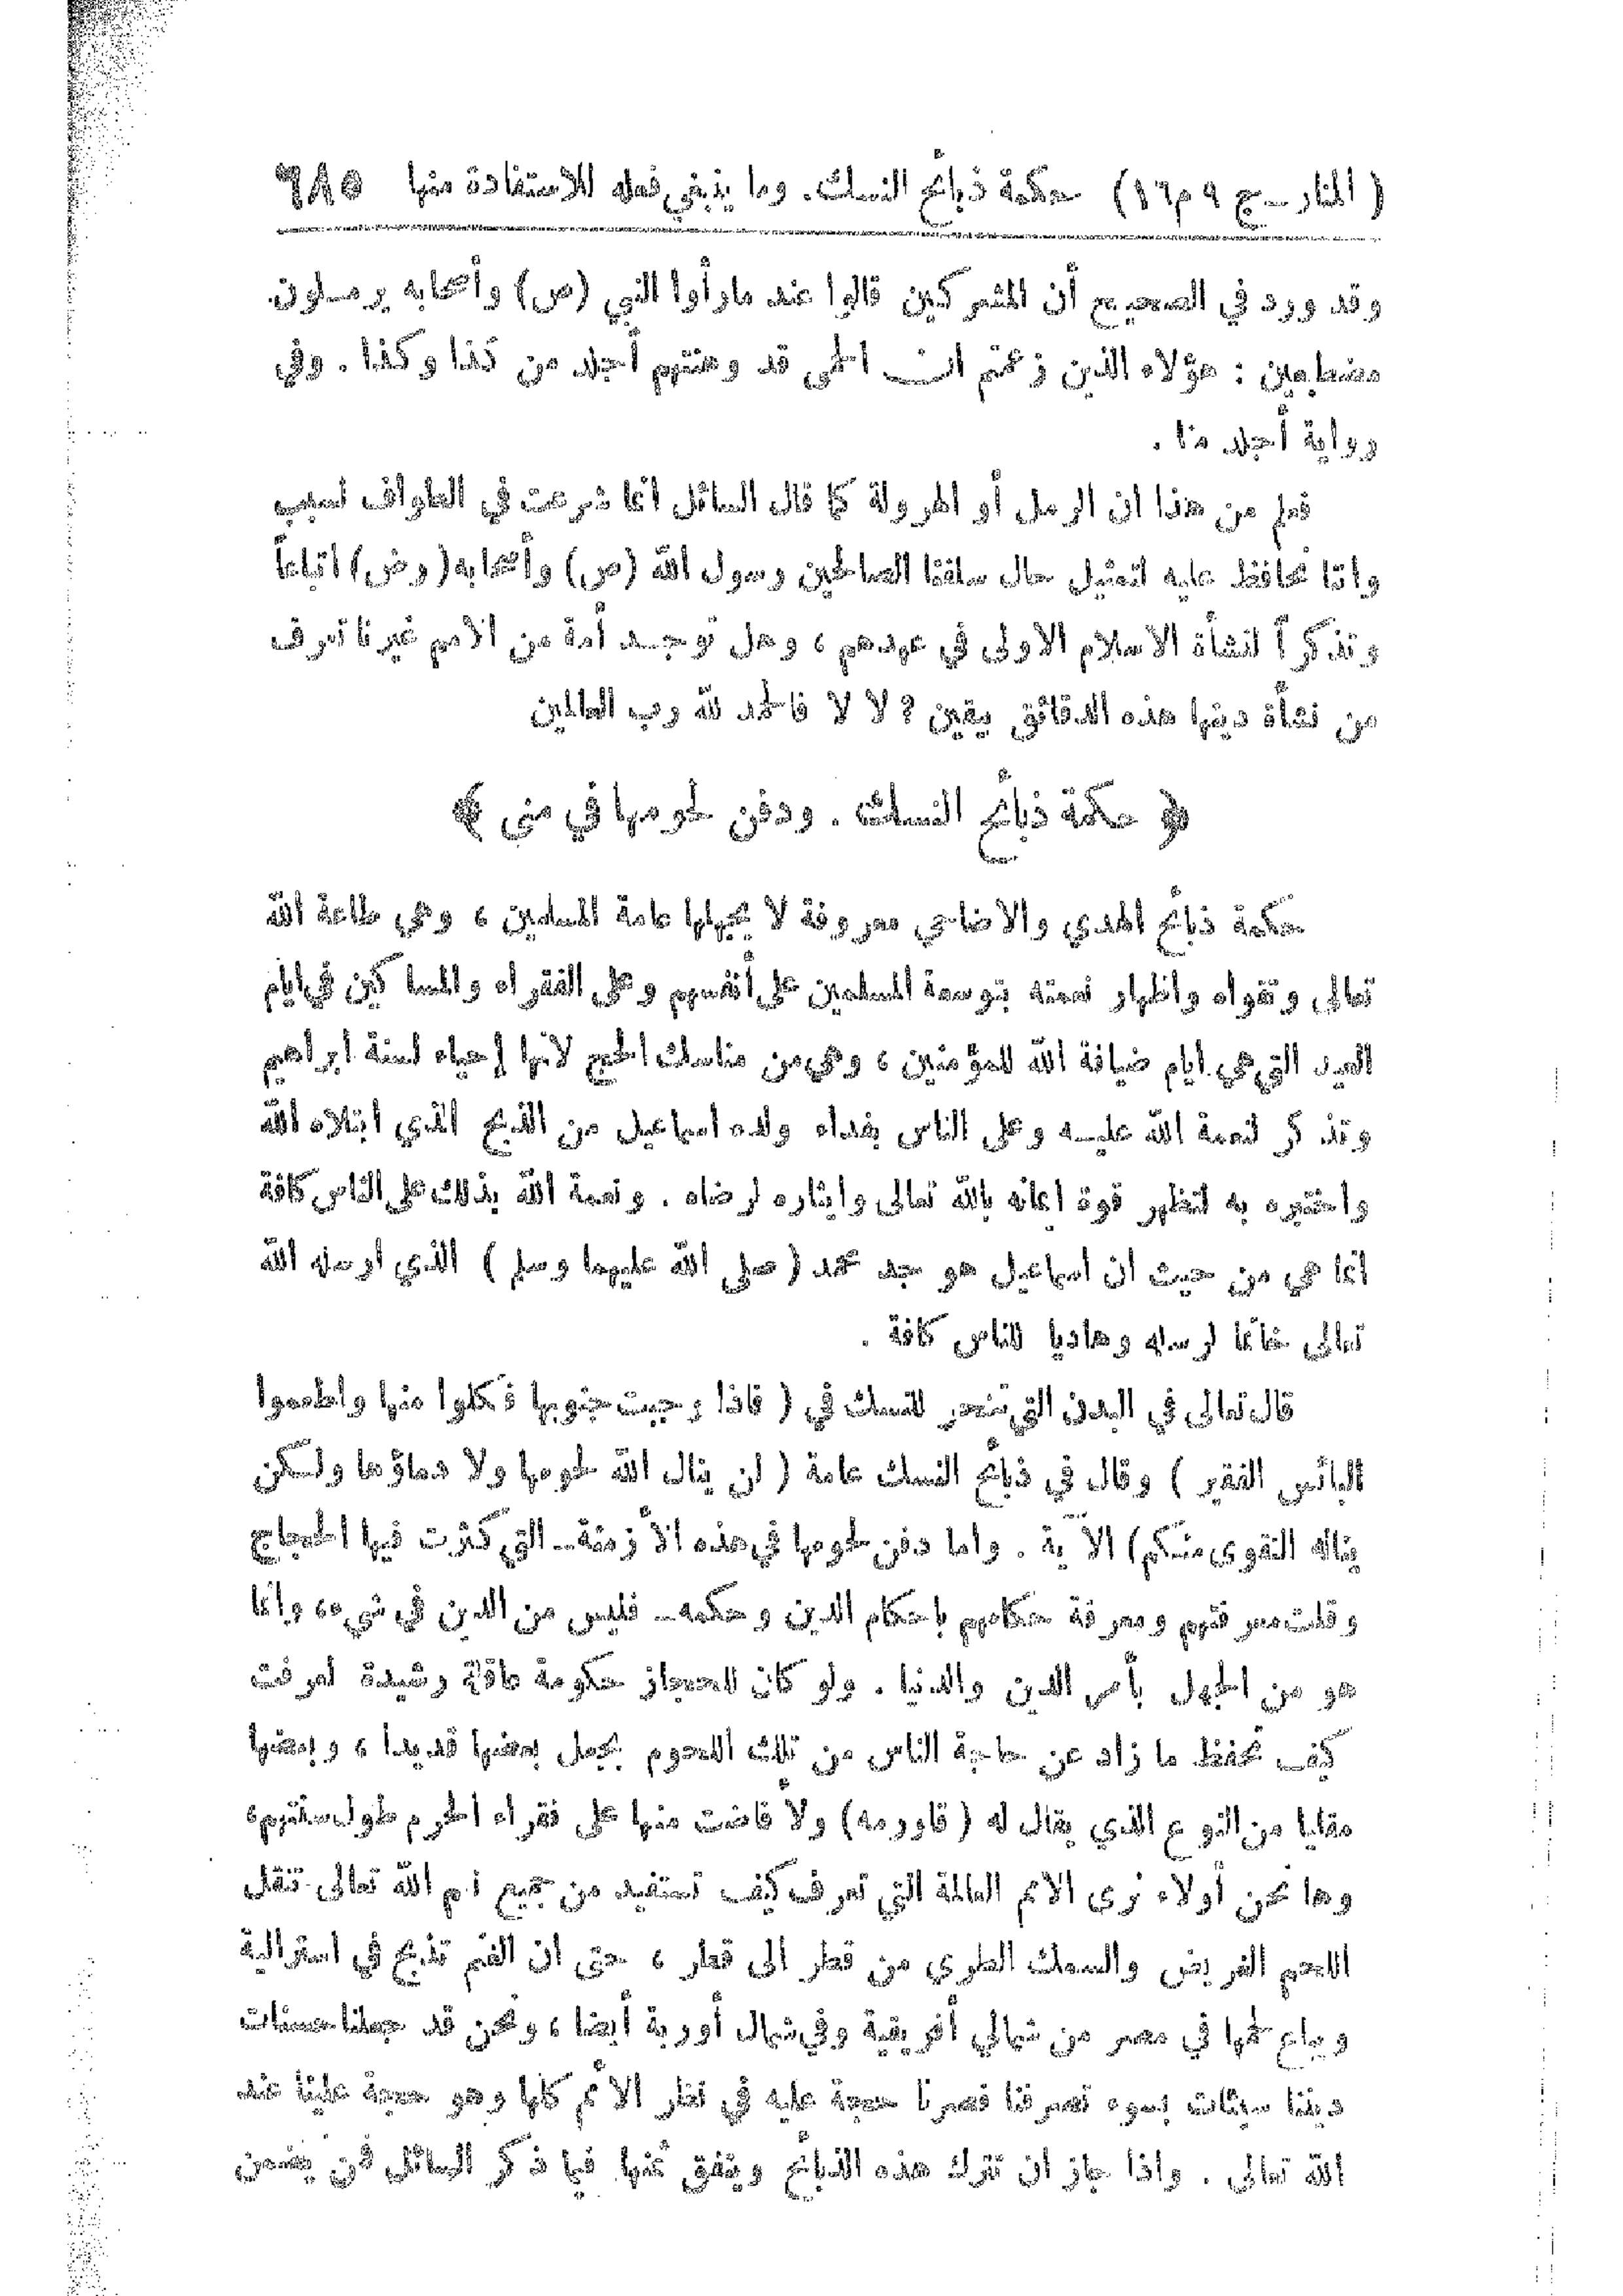 ( المنار ــ ج ٩ م ١٦ ) حكمة ذبائح النسك. وما ينبغي فعله للاستفادة منها ٦٨٥
وقد ورد في الصحيح أن المشركين قالوا عند ما رأوا النبي (ص) وأصحابه يرملون
مضطبعين : هؤلاء الذين زعمتم ان الحمى قد وهنتهم أجلد من كذا وكذا . وفي
رواية أجلد منا .
فعلم من هذا ان الرمل أو الهرولة كما قال السائل انما شرعت في الطواف لسبب
واننا نحافظ عليه لتمثيل حال سلفنا الصالحين رسول الله (ص) وأصحابه (رض) اتباعاً
وتذكراً لنشأة الاسلام الاولى في عهدهم ، وهل توجد أمة من الامم غيرنا تعرف
من نشأة دينها هذه الدقائق بيقين ؟ لا لا فالحمد لله رب العالمين
﴿ حكمة ذبائح النسك . ودفن لحومها في منى ﴾
حكمة ذبائح الهدي والاضاحي معروفة لا يجهلها عامة المسلمين ، وهي طاعة الله
تعالى وتقواه واظهار نعمته بتوسعة المسلمين على أنفسهم وعلى الفقراء والمساكين في ايام
العيد التي هي ايام ضيافة الله للمؤمنين ، وهي من مناسك الحج لانها إحياء لسنة ابراهيم
وتذكر لنعمة الله عليه وعلى الناس بفداء ولده اسماعيل من الذبح الذي ابتلاه الله
واختبره به لتظهر قوة ايمانه بالله تعالى وايثاره لرضاه . ونعمة الله بذلك على الناس كافة
انما هي من حيث ان اسماعيل هو جد محمد ( صلى الله عليهما وسلم ) الذي ارسله الله
تعالى خاتما لرسله وهاديا للناس كافة .
قال تعالى في البدن التي تنحر للنسك في ( فاذا وجبت جنوبها فكلوا منها واطعموا
البائس الفقير ) وقال في ذبائح النسك عامة ( لن ينال الله لحومها ولا دماؤها ولكن
يناله التقوى منكم) الآية . واما دفن لحومها في هذه الأزمنة ــ التي كثرت فيها الحجاج
وقلت معرفتهم ومعرفة حكامهم باحكام الدين وحكمه ــ فليس من الدين في شيء، وانما
هو من الجهل بأمر الدين والدنيا . ولو كان للحجاز حكومة عاقلة رشيدة لعرفت
كيف تحفظ ما زاد عن حاجة الناس من تلك اللحوم بجعل بعضها قديدا ، وبعضها
مقليا من النوع الذي يقال له ( قاورمه) ولأفاضت منها على فقراء الحرم طول سنتهم،
وها نحن أولاء نرى الامم العالمة التي تعرف كيف تستفيد من جميع نعم الله تعالى تنقل
اللحم الغريض والسمك الطري من قطر الى قطر ، حتى ان الغنم تذبح في استرالية
ويباع لحمها في مصر من شمالي أفريقية وفي شمال أوربة أيضا ، ونحن قد جعلنا حسنات
ديننا سيئات بسوء تصرفنا فصرنا حجة عليه في نظر الأمم كلها وهو حجة علينا عند
الله تعالى . واذا جاز ان تترك هذه الذبائح وينفق ثمنها فيما ذكر السائل فمن يضمن